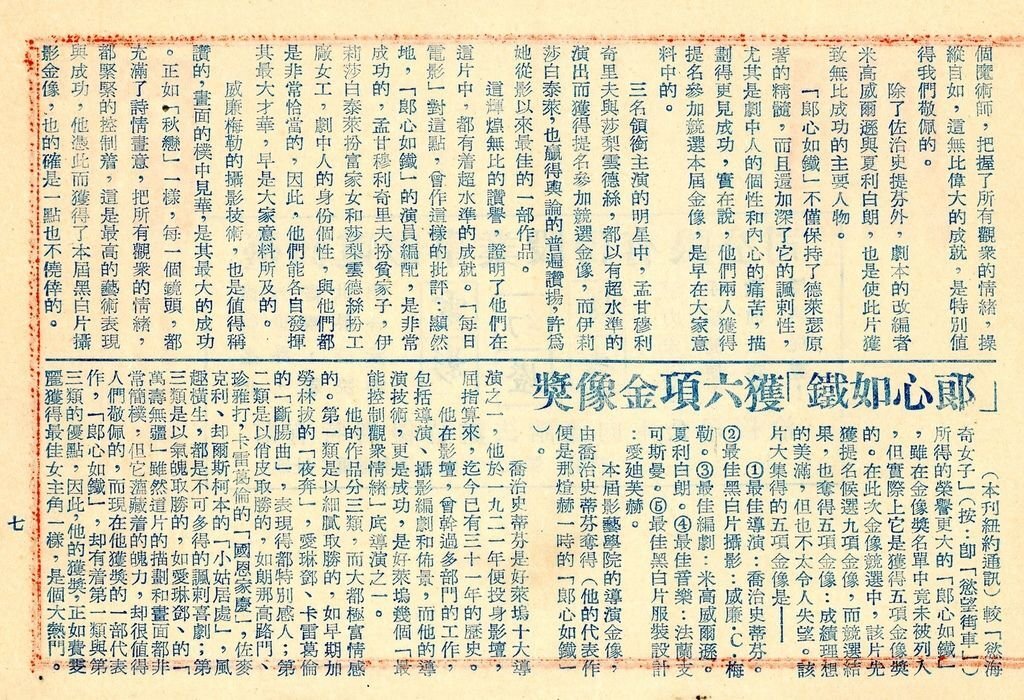 個魔術師，把握了所有觀衆的情緒，操
縱自如，這無比偉大的成就，是特別值
得我們敬佩的。
除了佐治史提芬外，劇本的改編者
米高威爾遜與夏利白朗，也是使此片獲
致無比成功的主要人物。
「郎心如鐵」不僅保持了德萊瑟原
著的精髓，而且還加深了它的諷刺性，
尤其是劇中人的個性和內心的痛苦，描
劃得更見成功，實在說，他們兩人獲得
提名參加競選本屆金像，是早在大家意
料中的。
三名領銜主演的明星中，孟甘穆利
奇里夫與莎梨雲德絲，都以有超水準的
演出而獲得提名參加競選金像，而伊莉
莎白泰萊，也贏得輿論的普遍讚揚，許為
她從影以來最佳的一部作品。
這輝煌無比的讚譽，證明了他們在
這片中，都有着超水準的成就。「每日
電影」對這點，曾作這樣的批評：顯然
地，「郎心如鐵」的演員編配，是非常
成功的，孟甘穆利奇里夫扮貧家子，伊
莉莎白泰萊扮富家女和莎梨雲德絲扮工
廠女工，劇中人的身份個性，與他們都
是非常恰當的，因此，他們能各自發揮
其最大才華，早是大家意料所及的。
威廉梅勒的攝影技術，也是值得稱
讚的，畫面的樸中見華，是其最大的成功
。正如「秋戀」一樣，每一個鏡頭，都
充滿了詩情畫意，把所有觀衆的情緒，
都緊緊的控制着，這是最高的藝術表現
與成功，他憑此而獲得了本屆黑白片攝
影金像，也的確是一點也不僥倖的。
「郎心如鐵」獲六項金像獎
（本刊紐約通訊）較「慾海
奇女子」（按：即「慾望街車」）
所得的榮譽更大的「郎心如鐵」
，雖在金像獎名單中竟未被列入
，但實際上它是獲得五項金像獎
的。在此次金像競選中，該片先
獲提名候選九項金像，而競選結
果，也奪得五項金像：成績理想
的美滿，但也不太令人失望。該
片大集所得的五項金像是——
①最佳導演：喬治史蒂芬。
②最佳黑白片攝影：威廉·C·梅
勒。③最佳編劇：米高威爾遜。
夏利白朗。④最佳音樂：法蘭支
可斯曼。⑤最佳黑白片服裝設計
：愛廸芙赫。
本屆影藝學院的導演金像，
由喬治史蒂芬奪得（他的代表作
便是那煊赫一時的「郎心如鐵」
）。
喬治史蒂芬是好萊塢十大導
演之一，他於一九二一年便投身影壇，
屈指算來，迄今已有三十一年的歷史。
他在影壇，曾幹過多部門的工作，
包括導演、攝影編劇和佈景，而他的導
演技術，更是成功，是好萊塢幾個「最
能控制觀衆情緒」底導演之一。
他的作品分三類，而大都極富情感
的。第一類是以細膩取勝的，如早期加
勞林拔的「夜奔」，愛琳鄧、卡雷葛倫
的「斷腸曲」，表現得都特別感人；第
二類是以俏皮取勝的，如朗那高路門、
珍雅打，卡雷葛倫的「國恩家慶」，佐麥
克利、却爾斯柯本的「小姑居處」，風
趣橫生，都是不可多得的諷刺喜劇；第
三類是以氣魄取勝的，如愛琳鄧的「
萬壽無疆」雖然這片的描劃和畫面都非
常簡樸，但它蘊藏着的魄力，却很值得
人們敬佩的，而現在他獲獎的一部代表
作，「郎心如鐵」，却有着第一類與第
三類的優點，因此，他的獲獎，正如費雯
麗獲得最佳女主角一樣，是個大熱門。
七